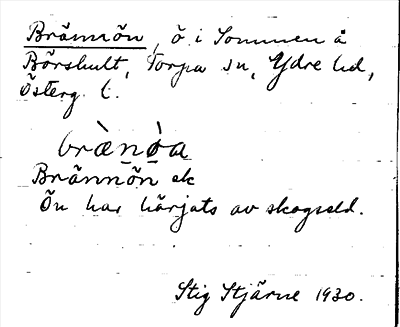 Brännön, ö i Sommen å
Börshult, Torpa sn, Ydre hd,
Österg l.
bràn̲ò̲a
Brännön ek
Ön har härjats av skogseld.
Stig Stjärne 1930.